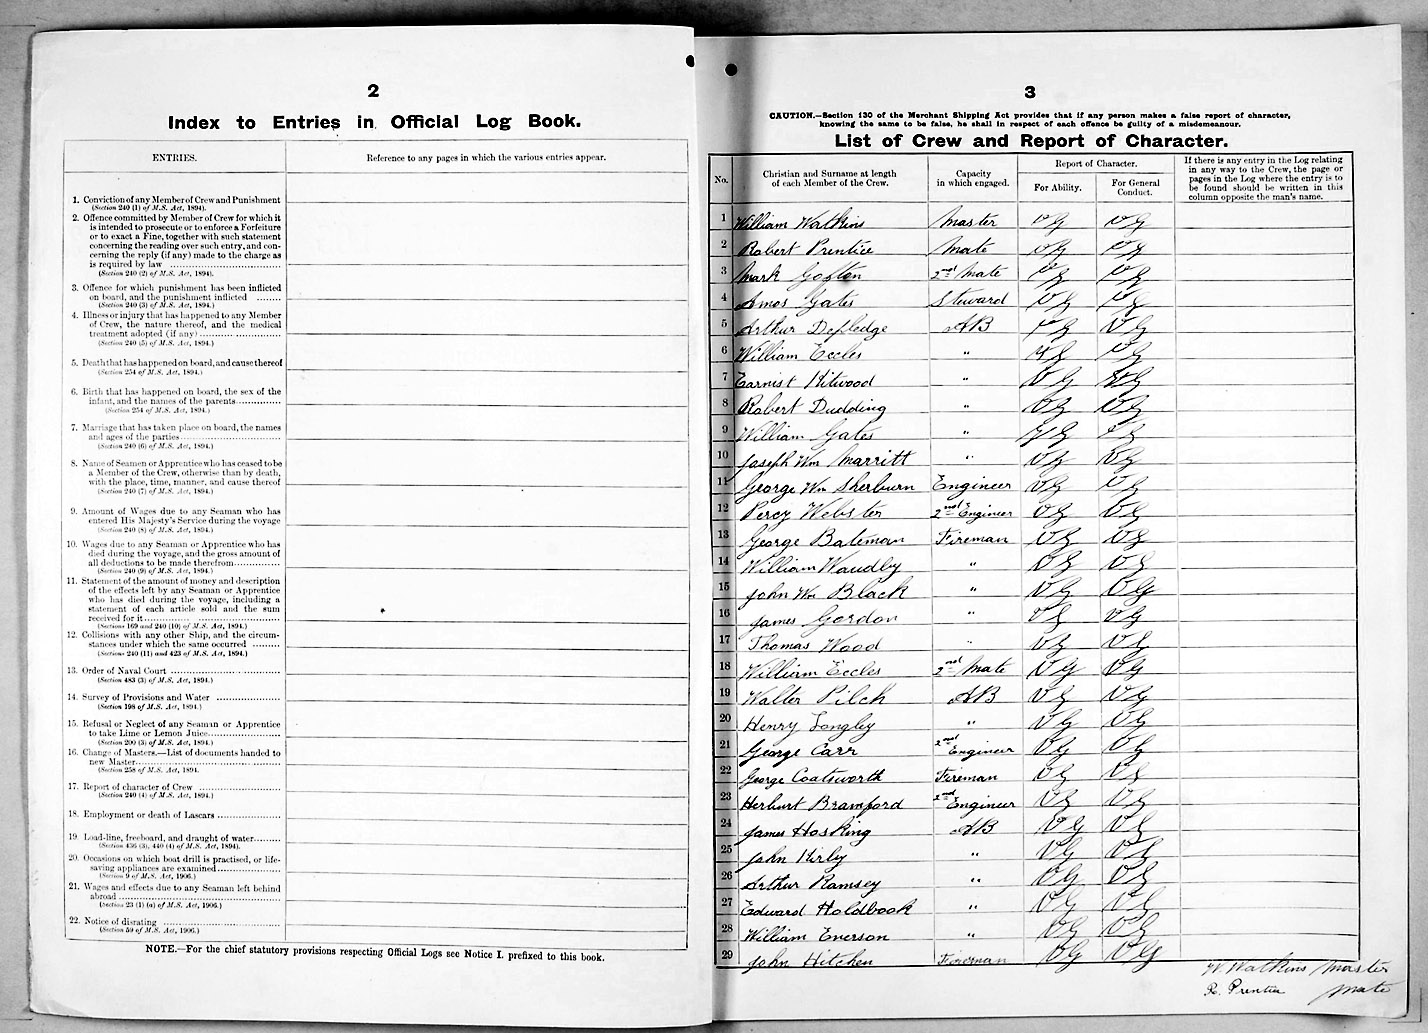 2
Index to Entries in Official Log Book.
ENTRIES. Reference to any pages in which the various entries appear.
1. Conviction of any Member of Crew and Punishment
(Section 240 (1) of M.S. Act, 1894).
2. Offence committed by Member of Crew for which it
is intended to prosecute or to enforce a Forfeiture
or to exact a Fine, together with such statement
concerning the reading over such entry, and con-
cerning the reply (if any) made to the charge as
is required by law
(Section 240 (2) of M.S. Act, 1894).
3. Offence for which punishment has been inflicted
on board, and the punishment inflicted
(Section 240 (3) of M.S. Act, 1894.)
4. Illness or injury that has happened to any Member
of Crew, the nature thereof, and the medical
treatment adopted (if any)
(Section 240 (5) of M.S. Act, 1894.)
5. Death that has happened on board, and cause thereof
(Section 254 of M.S. Act, 1894.)
6. Birth that has happened on board, the sex of the
infant, and the names of the parents
(Section 254 of M.S. Act, 1894.)
7. Marriage that has taken place on board, the names
and ages of the parties
(Section 240 (6) of M.S. Act, 1894.)
8. Name of Seamen or Apprentice who has ceased to be
a Member of the Crew, otherwise than by death,
with the place, time, manner, and cause thereof
(Section 240 (7) of M.S. Act, 1894.)
9. Amount of Wages due to any Seaman who has
entered His Majesty's Service during the voyage
(Section 240 (8) of M.S. Act, 1894.)
10. Wages due to any Seaman or Apprentice who has
died during the voyage, and the gross amount of
all deductions to be made therefrom
(Section 240 (9) of M.S. Act, 1894.)
11. Statement of the amount of money and description
of the effects left by any Seaman or Apprentice
who has died during the voyage, including a
statement of each article sold and the sum
received for it
(Sections 169 and 240 (10) of M.S. Act, 1894.)
12. Collisions with any other Ship, and the circum-
stances under which the same occurred
(Sections 240 (11) and 423 of M.S. Act, 1894.)
13. Order of Naval Court
(Section 483 (3) of M.S. Act, 1894.)
14. Survey of Provisions and Water
(Section 198 of M.S. Act, 1894.)
15. Refusal or Neglect of any Seaman or Apprentice
to take Lime or Lemon Juice
(Section 200 (3) of M.S. Act, 1894.)
16. Change of Masters.—List of documents handed to
new Master
(Section 258 of M.S. Act, 1894.
17. Report of character of Crew
(Section 240 (4) of M.S. Act, 1894.)
18. Employment or death of Lascars
19. Load-line, freeboard, and draught of water
(Section 436 (3), 440 (4) of M.S. Act, 1894).
20. Occasions on which boat drill is practised, or life-
saving appliances are examined
(Section 9 of M.S. Act, 1906.)
21. Wages and effects due to any Seaman left behind
abroad
(Section 23 (1) (a) of M.S. Act, 1906.)
22. Notice of disrating
(Section 59 of M.S. Act, 1906.)
NOTE.—For the chief statutory provisions respecting Official Logs see Notice I. prefixed to this book.
3
CAUTION.—Section 130 of the Merchant Shipping Act provides that if any person makes a false report of character,
knowing the same to be false, he shall in respect of each offence be guilty of a misdemeanour.
List of Crew and Report of Character.
No. Christian and Surname at length of each Member of the Crew. Capacity in which engaged. Report of Character. For Ability. For General Conduct. If there is any entry in the Log relating in any way to the Crew, the page or pages in the Log where the entry is to be found should be written in this column opposite the man's name.
1 William Watkins Master VG VG
2 Robert Prentice Mate VG VG
3 Mark Gofton 2nd Mate VG VG
4 Amos Gates Steward VG VG
5 Arthur Depledge AB VG VG
6 William Eccles " VG VG
7 Earnist Kitwood " VG VG
8 Robert Dudding " VG VG
9 William Gates " VG VG
10 Joseph Wm Marritt " VG VG
11 George Wm Sherburn Engineer VG VG
12 Percy Webster 2nd Engineer VG VG
13 George Bateman Fireman VG VG
14 William Waudby " VG VG
15 John Wm Black " VG VG
16 James Gordon " VG VG
17 Thomas Wood " VG VG
18 William Eccles 2nd Mate VG VG
19 Walter Pilch AB VG VG
20 Henry Longley " VG VG
21 George Carr 2nd Engineer VG VG
22 George Coatsworth Fireman VG VG
23 Herbert Bramford 2nd Engineer VG VG
24 James Hosking AB VG VG
25 John Kirby " VG VG
26 Arthur Ramsey " VG VG
27 Edward Holdbook " VG VG
28 William Enerson " VG VG
29 John Hitchen Fireman VG VG
W. Watkins Master
R. Prentice Mate